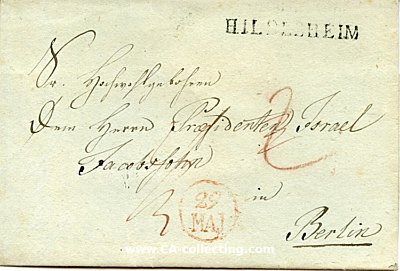 HILDESHEIM
Sr. Hochwohlgebohren
Dem Herrn Præsidenten Israel
Jacobssohn
in
29
MAI
Berlin
www.CA-collecting.com